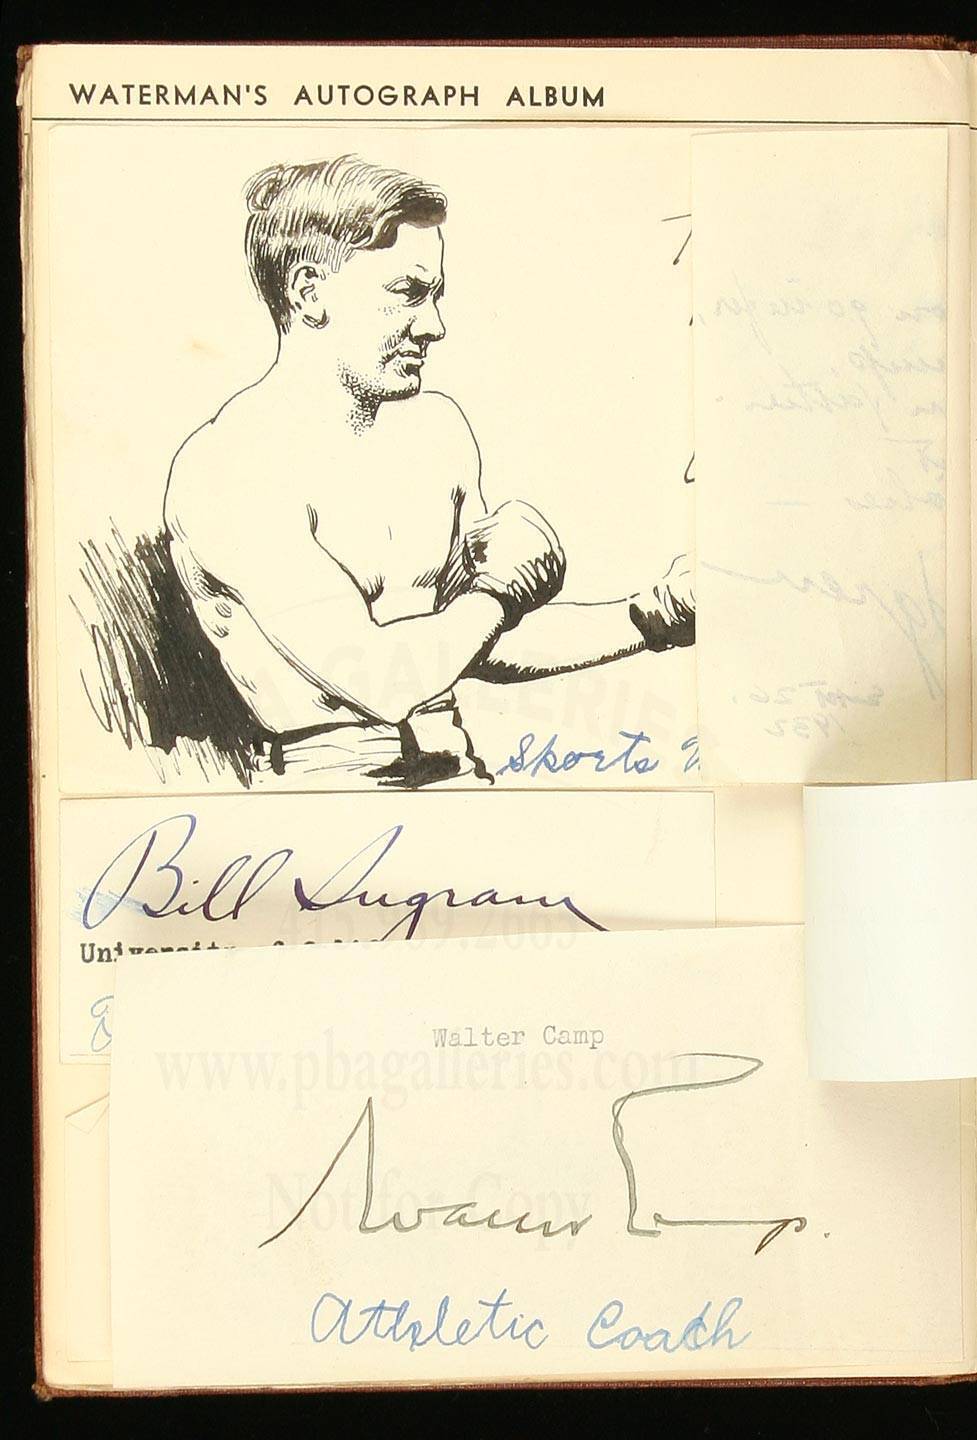 WATERMAN'S AUTOGRAPH ALBUM
Sports
Bill Ingram
University of
Walter Camp
Walter Camp.
Athletic Coach
PBA GALLERIES
415.989.2665
www.pbagalleries.com
Not for Copy
Sept 26.
1932